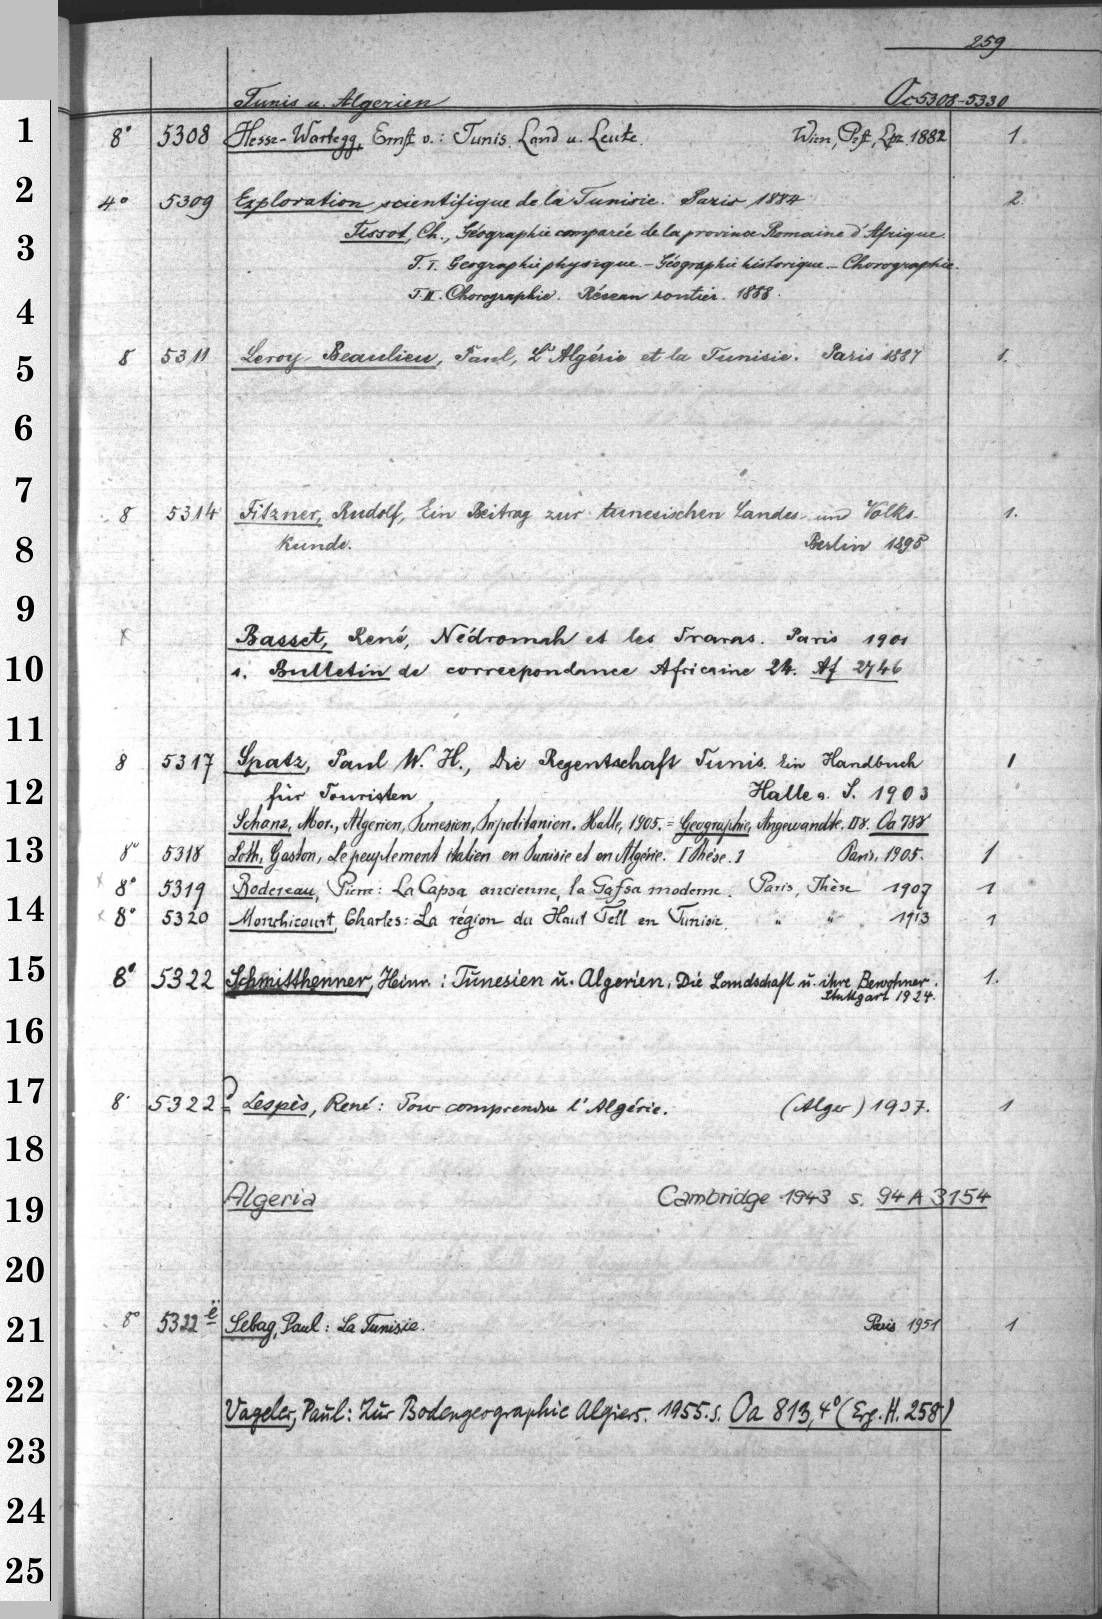 259
Tunis u. Algerien Oc 5308-5330
1 8° 5308 Hesse-Wartegg, Ernst v.: Tunis. Land u. Leute. Wien, Pest, Lpz. 1882 1.
2 4° 5309 Exploration scientifique de la Tunisie. Paris 1884 2.
3 Tissot, Ch., Géographie comparée de la province Romaine d'Afrique.
T. I. Geographie physique. - Géographie historique. - Chorographie.
4 T. II. Chorographie. Réseau routier. 1888.
5 8 5311 Leroy-Beaulieu, Paul, L'Algérie et la Tunisie. Paris 1887 1.
6
7 8 5314 Fitzner, Rudolf, Ein Beitrag zur tunesischen Landes- und Volks-
8 kunde. Berlin 1895 1.
9 x Basset, René, Nédromah et les Traras. Paris 1901
10 s. Bulletin de correspondance Africaine 24. Af 2746
11
8 5317 Spatz, Paul W. H., Die Regentschaft Tunis. Ein Handbuch 1
12 für Touristen Halle a. S. 1903
Schanz, Mor., Algerien, Tunesien, Tripolitanien. Halle, 1905. = Geographie, Angewandte. II 8. Oa 788
13 8° 5318 Loth, Gaston, Le peuplement italien en Tunisie et en Algérie. [Thèse.] Paris, 1905. 1
x 8° 5319 Bodereau, Pierre: La Capsa ancienne, la Gafsa moderne. Paris, Thèse 1907 1
14 x 8° 5320 Monchicourt, Charles: La région du Haut Tell en Tunisie. " " 1913 1
15 8° 5322 Schmitthenner, Heinr.: Tunesien u. Algerien. Die Landschaft u. ihre Bewohner. 1.
Stuttgart 1924.
16
17 8° 5322 Lespès, René: Pour comprendre l'Algérie. (Alger) 1937. 1
18
19 Algeria Cambridge 1943 s. 94 A 3154
20
21 8° 5322 e Sebag, Paul: La Tunisie. Paris 1951 1
22 Vageler, Paul: Zur Bodengeographie Algiers. 1955. s. Oa 813, 4° (Erg. H. 258)
23
24
25